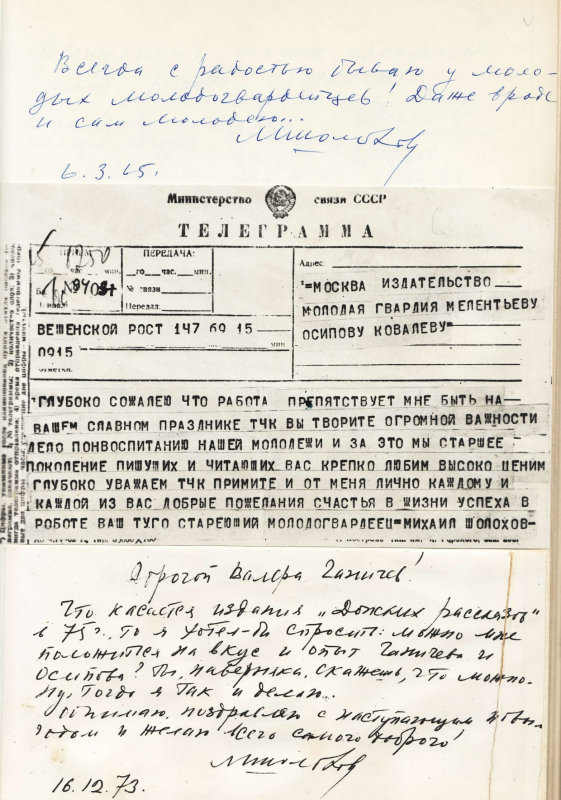 Всегда с радостью бываю у моло-
дых молодогвардейцев! Даже вроде
и сам молодею...
МШолохов
6.3.65.
Министерство связи СССР
ТЕЛЕГРАММА
ПЕРЕДАЧА:
го час. мин.
№ связи
Передал:
Адрес:
=МОСКВА ИЗДАТЕЛЬСТВО
МОЛОДАЯ ГВАРДИЯ МЕЛЕНТЬЕВУ
ОСИПОВУ КОВАЛЕВУ=
ВЕШЕНСКОЙ РОСТ 147 69 15
0915
мин
ГЛУБОКО СОЖАЛЕЮ ЧТО РАБОТА ПРЕПЯТСТВУЕТ МНЕ БЫТЬ НА
ВАШЕМ СЛАВНОМ ПРАЗДНИКЕ ТЧК ВЫ ТВОРИТЕ ОГРОМНОЙ ВАЖНОСТИ
ДЕЛО ПОНВОСПИТАНИЮ НАШЕЙ МОЛОДЕЖИ И ЗА ЭТО МЫ СТАРШЕЕ
ПОКОЛЕНИЕ ПИШУЩИХ И ЧИТАЮЩИХ ВАС КРЕПКО ЛЮБИМ ВЫСОКО ЦЕНИМ
ГЛУБОКО УВАЖАЕМ ТЧК ПРИМИТЕ И ОТ МЕНЯ ЛИЧНО КАЖДОМУ И
КАЖДОЙ ИЗ ВАС ДОБРЫЕ ПОЖЕЛАНИЯ СЧАСТЬЯ В ЖИЗНИ УСПЕХА В
РОБОТЕ ВАШ ТУГО СТАРЕЮЩИЙ МОЛОДОГВАРДЕЕЦ=МИХАИЛ ШОЛОХОВ-
Дорогой Валера Ганичев!
Что касается издания „Донских рассказов"
в 75г., то я хотел-бы спросить: можно мне
положиться на вкус и опыт Ганичева и
Осипова? Ты, наверняка, скажешь, что можно.
Ну, тогда я так и делаю...
Обнимаю, поздравляю с наступающим новым
годом и желаю всего самого доброго!
МШолохов
16.12.73.